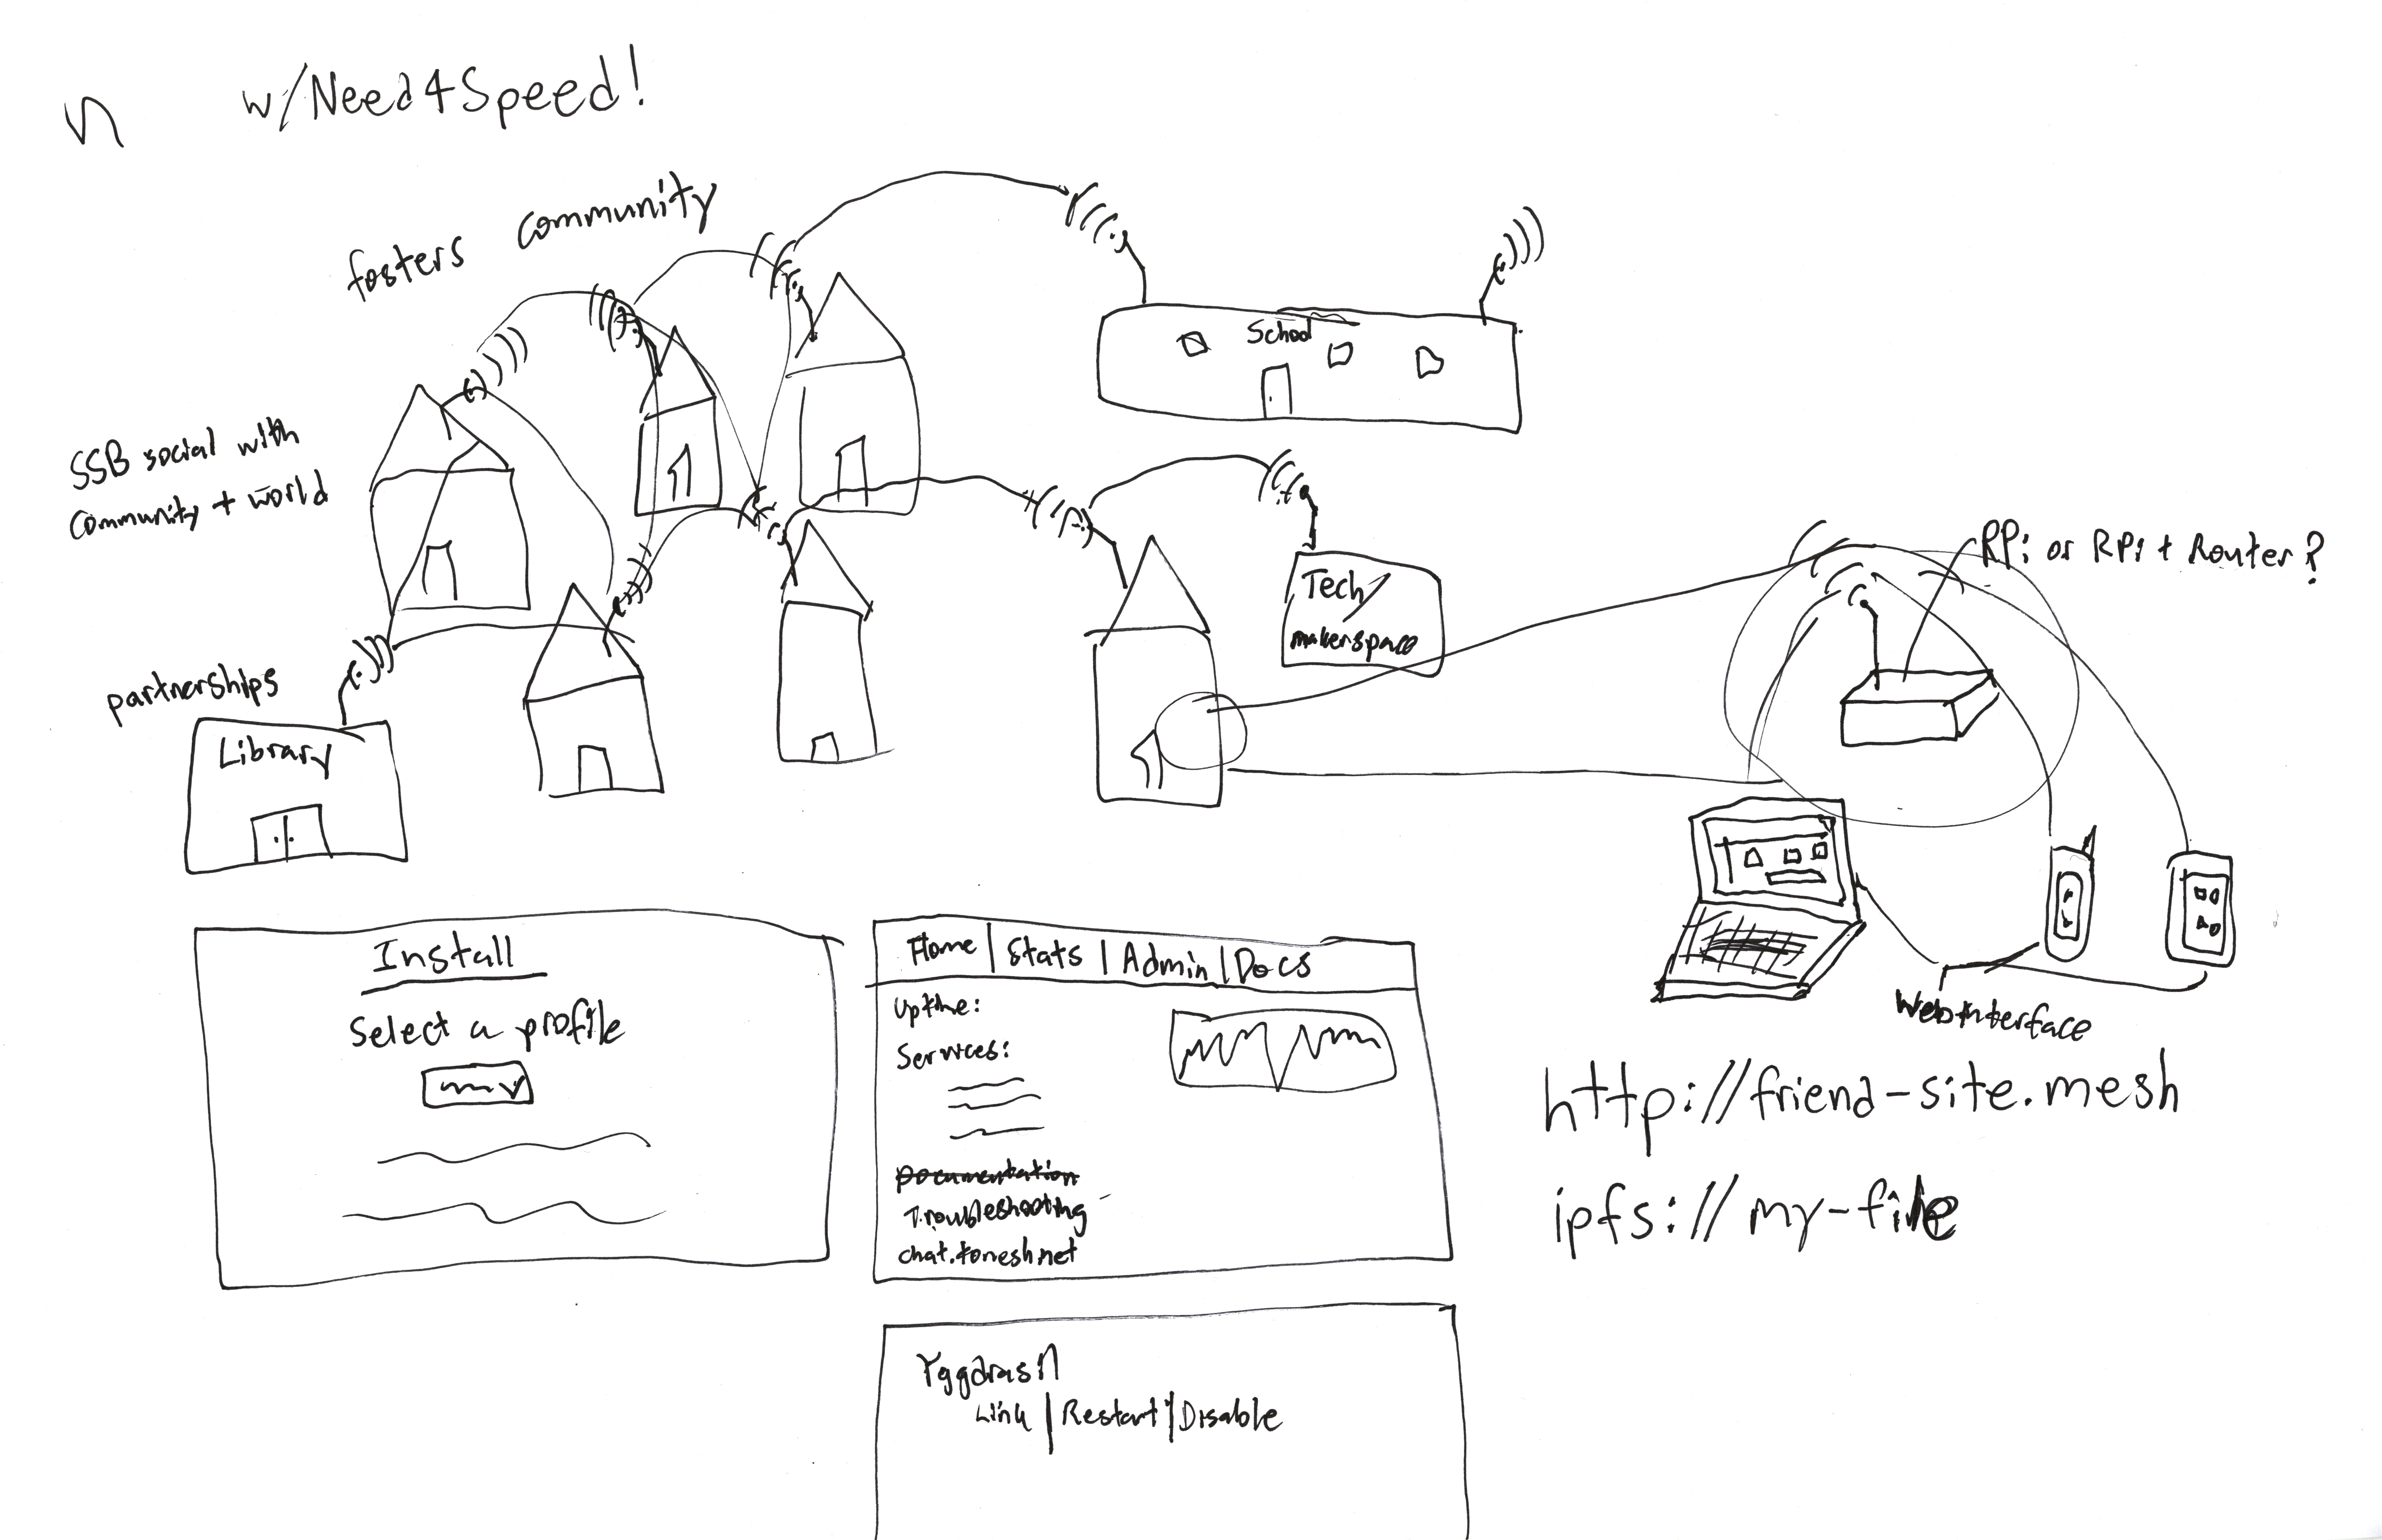 w/Need4Speed!
fosters community
School
SSB social with
Community + world
RPi or RPi + Router?
Tech/
makerspace
partnerships
Library
Install
Select a profile
Home | Stats | Admin | Docs
Uptime:
Services:
Documentation
Troubleshooting
chat.tomesh.net
Web interface
http://friend-site.mesh
ipfs://my-file
Yggdrasil
Link | Restart | Disable